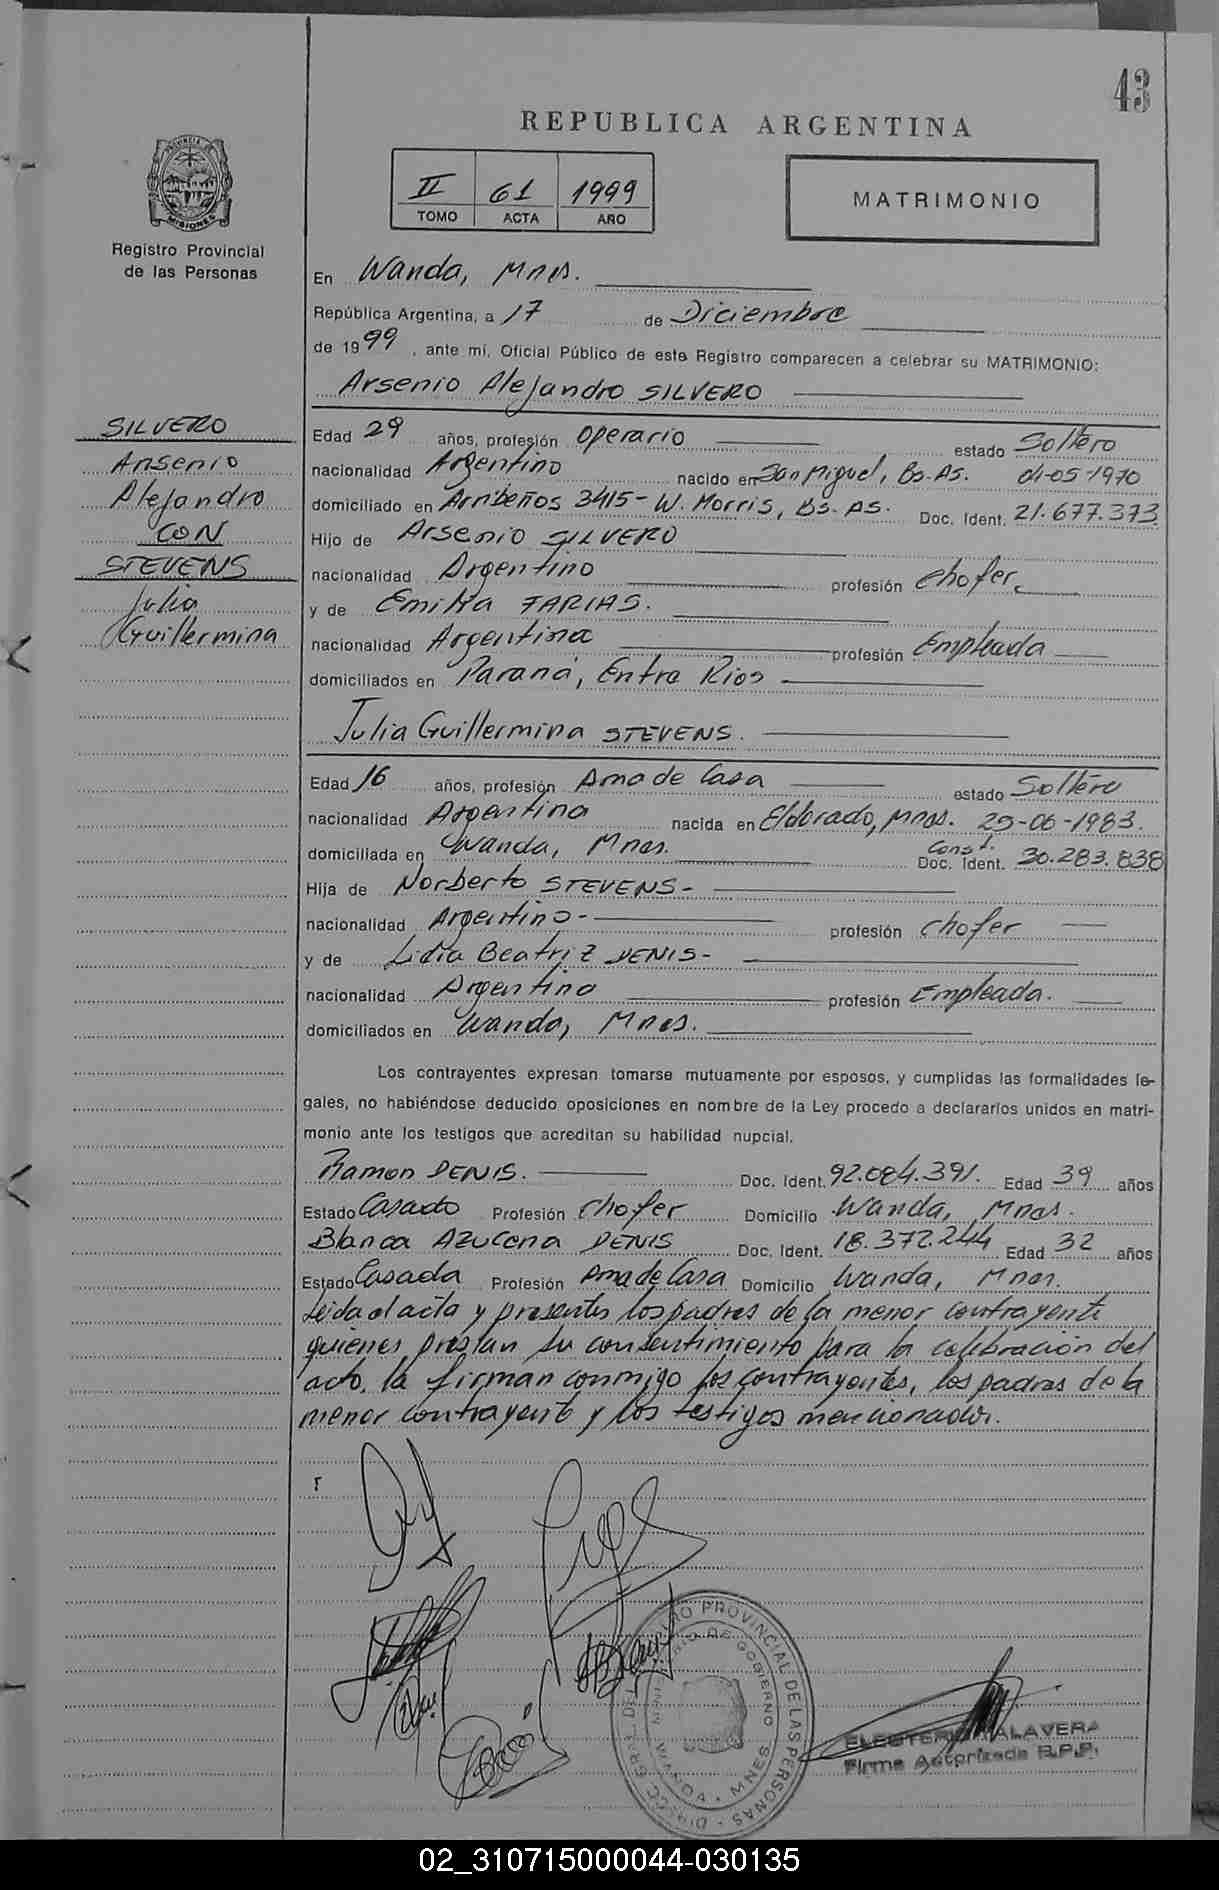 43
REPUBLICA ARGENTINA
PROVINCIA DE
MISIONES
Registro Provincial
de las Personas
II 61 1999
TOMO ACTA AÑO
MATRIMONIO
En Wanda, Mnes.
República Argentina, a 17 de Diciembre
de 1999, ante mí, Oficial Público de este Registro comparecen a celebrar su MATRIMONIO:
Arsenio Alejandro SILVERO
SILVERO
Arsenio
Alejandro
CON
STEVENS
Julia
Guillermina
Edad 29 años, profesión Operario estado Soltero
nacionalidad Argentino nacido en San Miguel, Bs. As. 01-05-1970
domiciliado en Arribeños 3415- W. Morris, Bs. As. Doc. Ident. 21.677.373
Hijo de Arsenio SILVERO
nacionalidad Argentino profesión chofer
y de Emilia FARIAS.
nacionalidad Argentina profesión Empleada
domiciliados en Paraná, Entre Rios
Julia Guillermina STEVENS.
Edad 16 años, profesión Ama de Casa estado Soltera
nacionalidad Argentina nacida en Eldorado, Mnes. 29-06-1983.
domiciliada en Wanda, Mnes. Const. Doc. Ident. 30.283.838
Hija de Norberto STEVENS-
nacionalidad Argentino- profesión chofer
y de Lidia Beatriz DENIS-
nacionalidad Argentina profesión Empleada.
domiciliados en Wanda, Mnes.
Los contrayentes expresan tomarse mutuamente por esposos, y cumplidas las formalidades le-
gales, no habiéndose deducido oposiciones en nombre de la Ley procedo a declararlos unidos en matri-
monio ante los testigos que acreditan su habilidad nupcial.
Ramon DENIS. Doc. Ident. 92.084.391. Edad 39 años
Estado Casado Profesión chofer Domicilio Wanda, Mnes.
Blanca Azucena DENIS Doc. Ident. 18.372.244 Edad 32 años
Estado Casada Profesión Ama de Casa Domicilio Wanda, Mnes.
Leida el acta y presentes los padres de la menor contrayente
quienes prestan su consentimiento para la celebración del
acto, la firman conmigo los contrayentes, los padres de la
menor contrayente y los testigos mencionados.
DIRECC. GRAL. DEL REGISTRO PROVINCIAL DE LAS PERSONAS
MINISTERIO DE GOBIERNO
WANDA - MNES
ELEUTERIO TALAVERA
Firma Autorizada R.P.P.
02_310715000044-030135